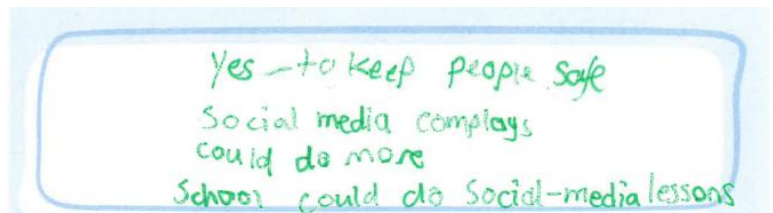 Yes - to keep people safe
Social media complays
could do more
School could do Social-media lessons